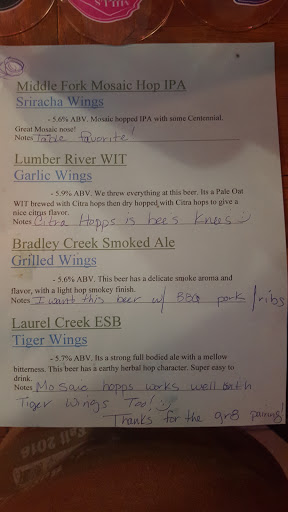 Middle Fork Mosaic Hop IPA
Sriracha Wings
- 5.6% ABV. Mosaic hopped IPA with some Centennial.
Great Mosaic nose!
Notes Table favorite!
Lumber River WIT
Garlic Wings
- 5.9% ABV. We threw everything at this beer. Its a Pale Oat
WIT brewed with Citra hops then dry hopped with Citra hops to give a
nice citrus flavor.
Notes Citra Hopps is bees knees :)
Bradley Creek Smoked Ale
Grilled Wings
- 5.6% ABV. This beer has a delicate smoke aroma and
flavor, with a light hop smokey finish.
Notes I want this beer w/ BBQ pork/ribs
Laurel Creek ESB
Tiger Wings
- 5.7% ABV. Its a strong full bodied ale with a mellow
bitterness. This beer has a earthy herbal hop character. Super easy to
drink.
Notes Mosaic hopps works well with
Tiger Wings Too! :)
Thanks for the gr8 pairing!
Fall 2018